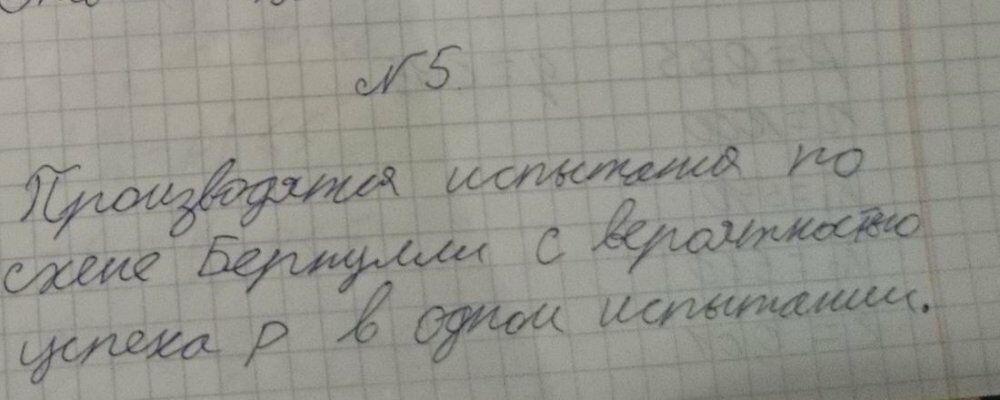 N 5.
Производятся испытания по
схеме Бернулли с вероятностью
успеха p в одном испытании.